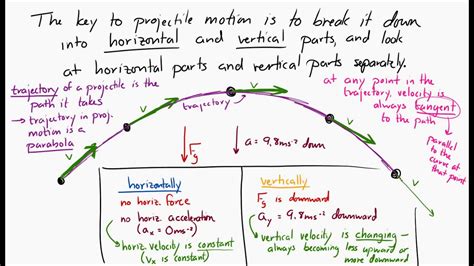 The key to projectile motion is to break it down
into horizontal and vertical parts, and look
at horizontal parts and vertical parts separately.
trajectory of a projectile is the
path it takes
→ trajectory in proj.
motion is a
parabola
at any point in the
trajectory, velocity is
always tangent
to the path
parallel
to the
curve at
that point
v
v
v
v
v
trajectory
Fg
a = 9.8ms⁻² down
horizontally
no horiz. force
no horiz. acceleration
(aₓ = 0ms⁻²)
↳ horiz. velocity is constant
(vₓ is constant)
vertically
Fg is downward
a_y = 9.8ms⁻² downward
↳ vertical velocity is changing –
always becoming less upward or
more downward